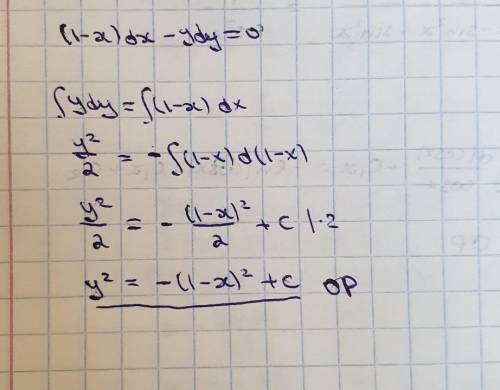 (1-x)dx - ydy = 0
∫ydy = ∫(1-x)dx
y²/2 = -∫(1-x)d(1-x)
y²/2 = -(1-x)²/2 + C |·2
y² = -(1-x)² + C OP